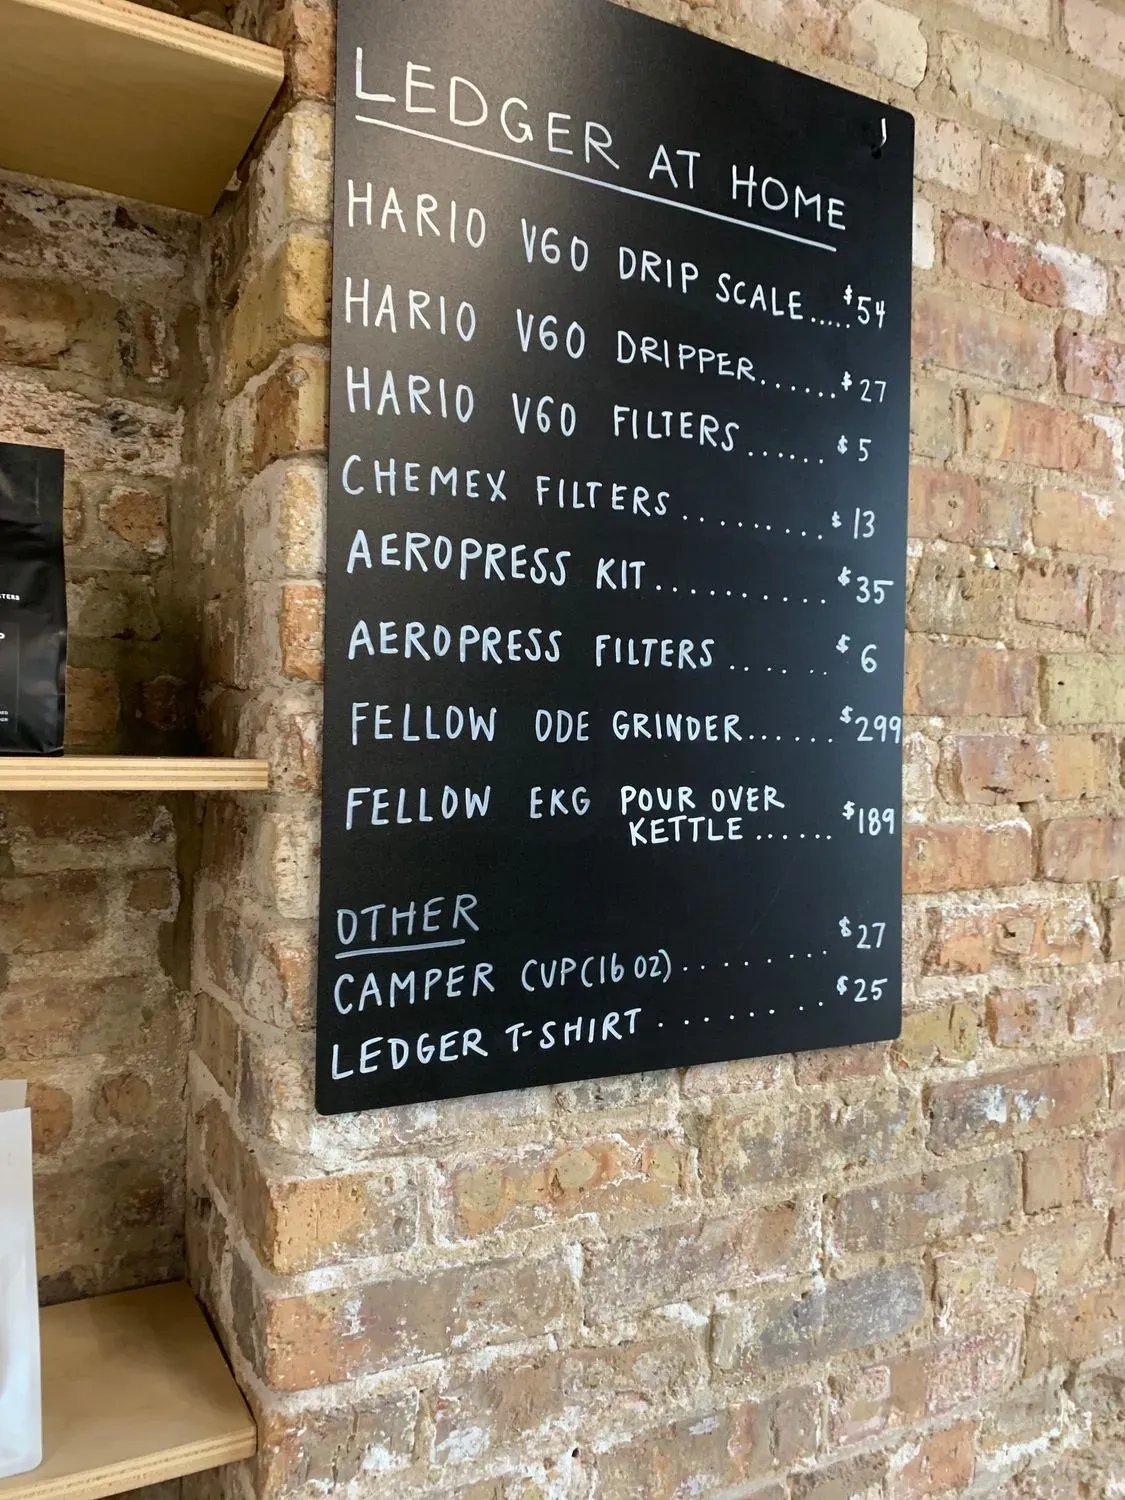 LEDGER AT HOME
HARIO V60 DRIP SCALE.....$54
HARIO V60 DRIPPER......$27
HARIO V60 FILTERS......$5
CHEMEX FILTERS.........$13
AEROPRESS KIT..........$35
AEROPRESS FILTERS......$6
FELLOW ODE GRINDER......$299
FELLOW EKG POUR OVER
KETTLE......$189
OTHER
CAMPER CUP(16 OZ)........$27
LEDGER T-SHIRT.......$25